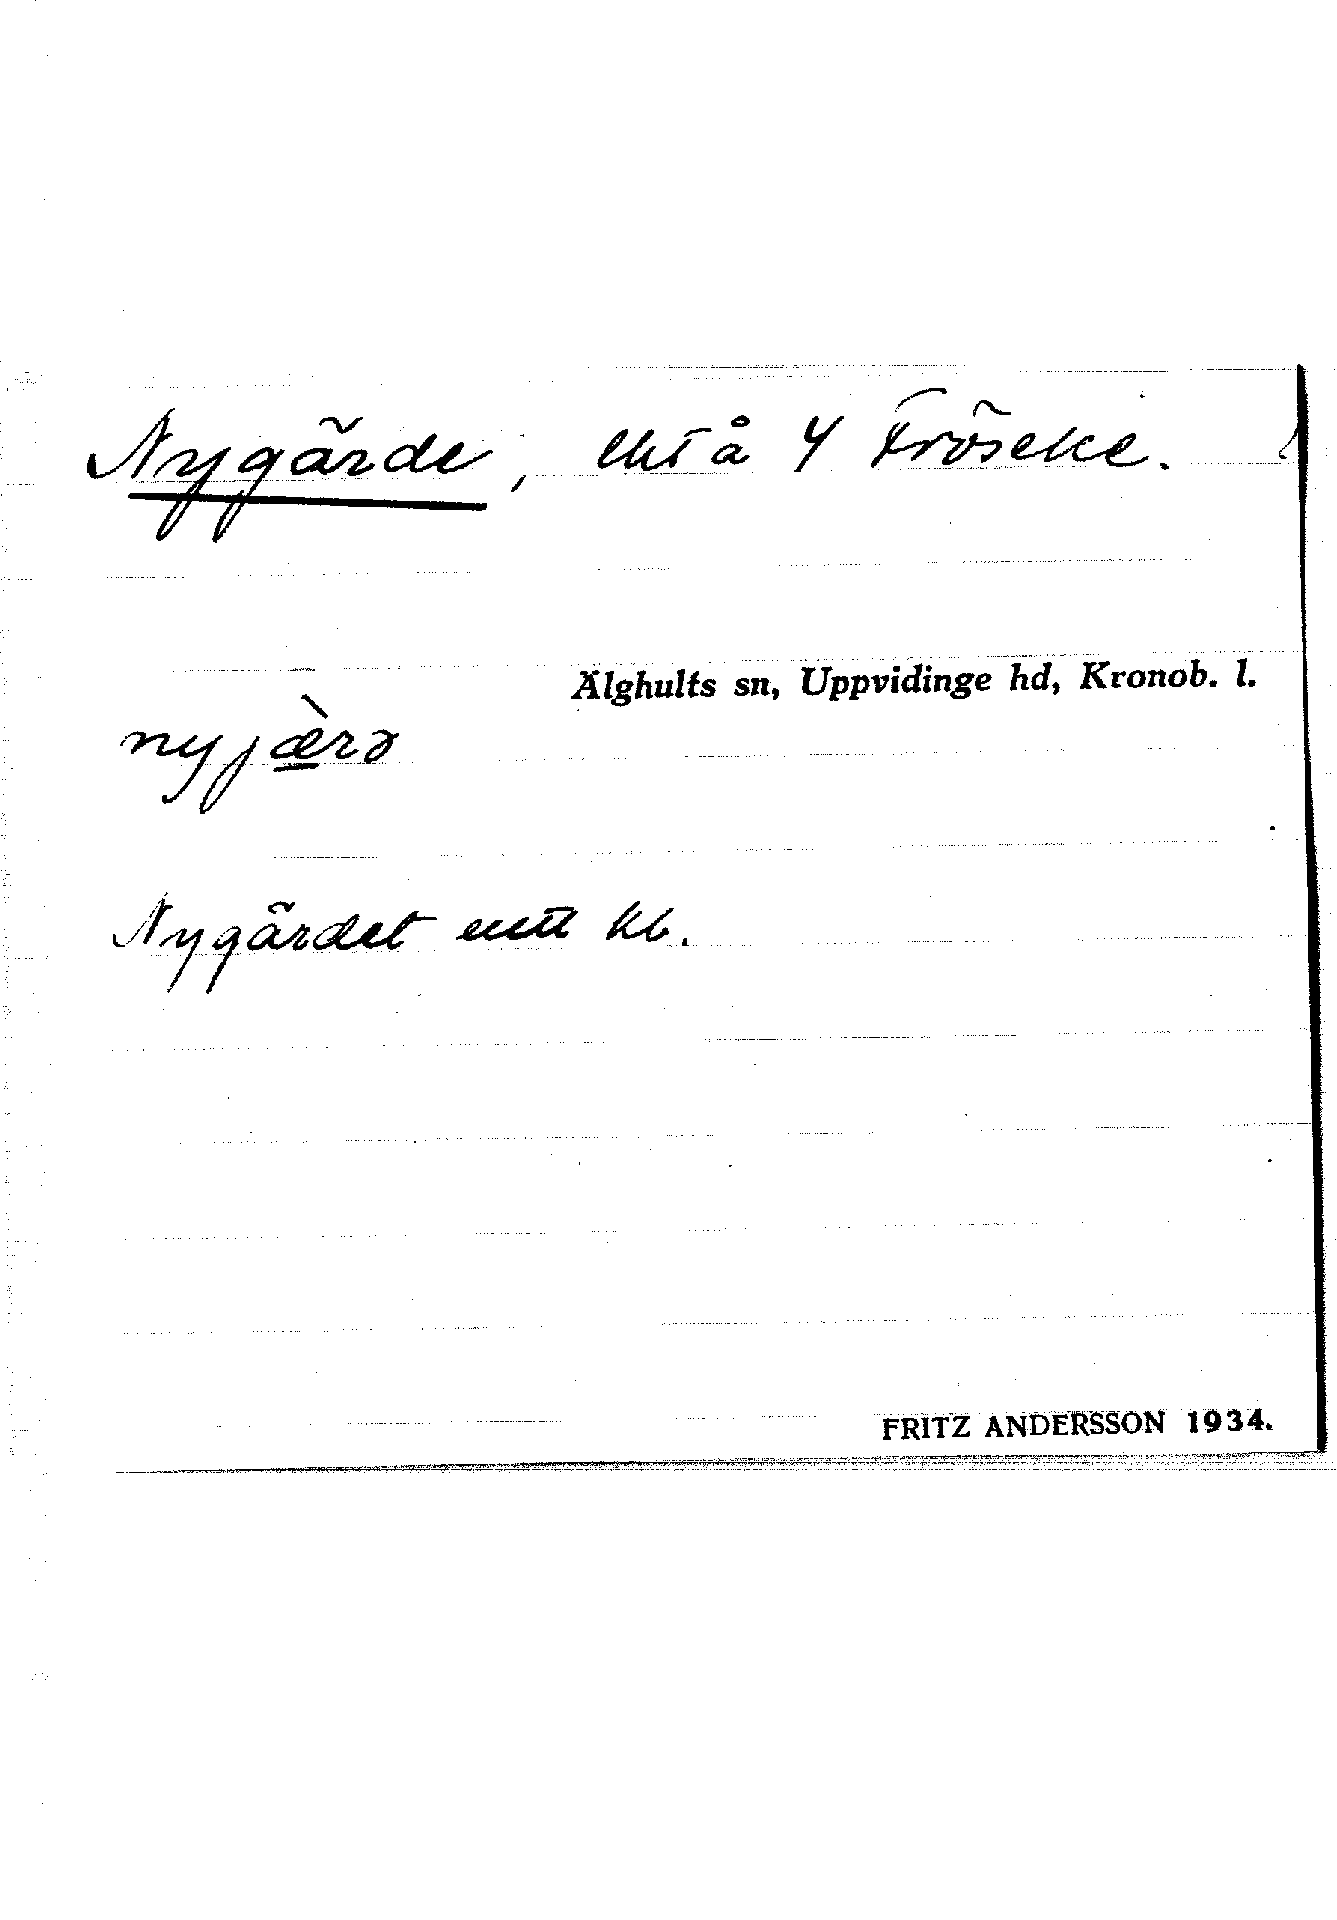 Nygärde, lht å 4 Fröseke.
Älghults sn, Uppvidinge hd, Kronob. l.
nyjæ̀rə
Nygärdet enl kb.
FRITZ ANDERSSON 1934.